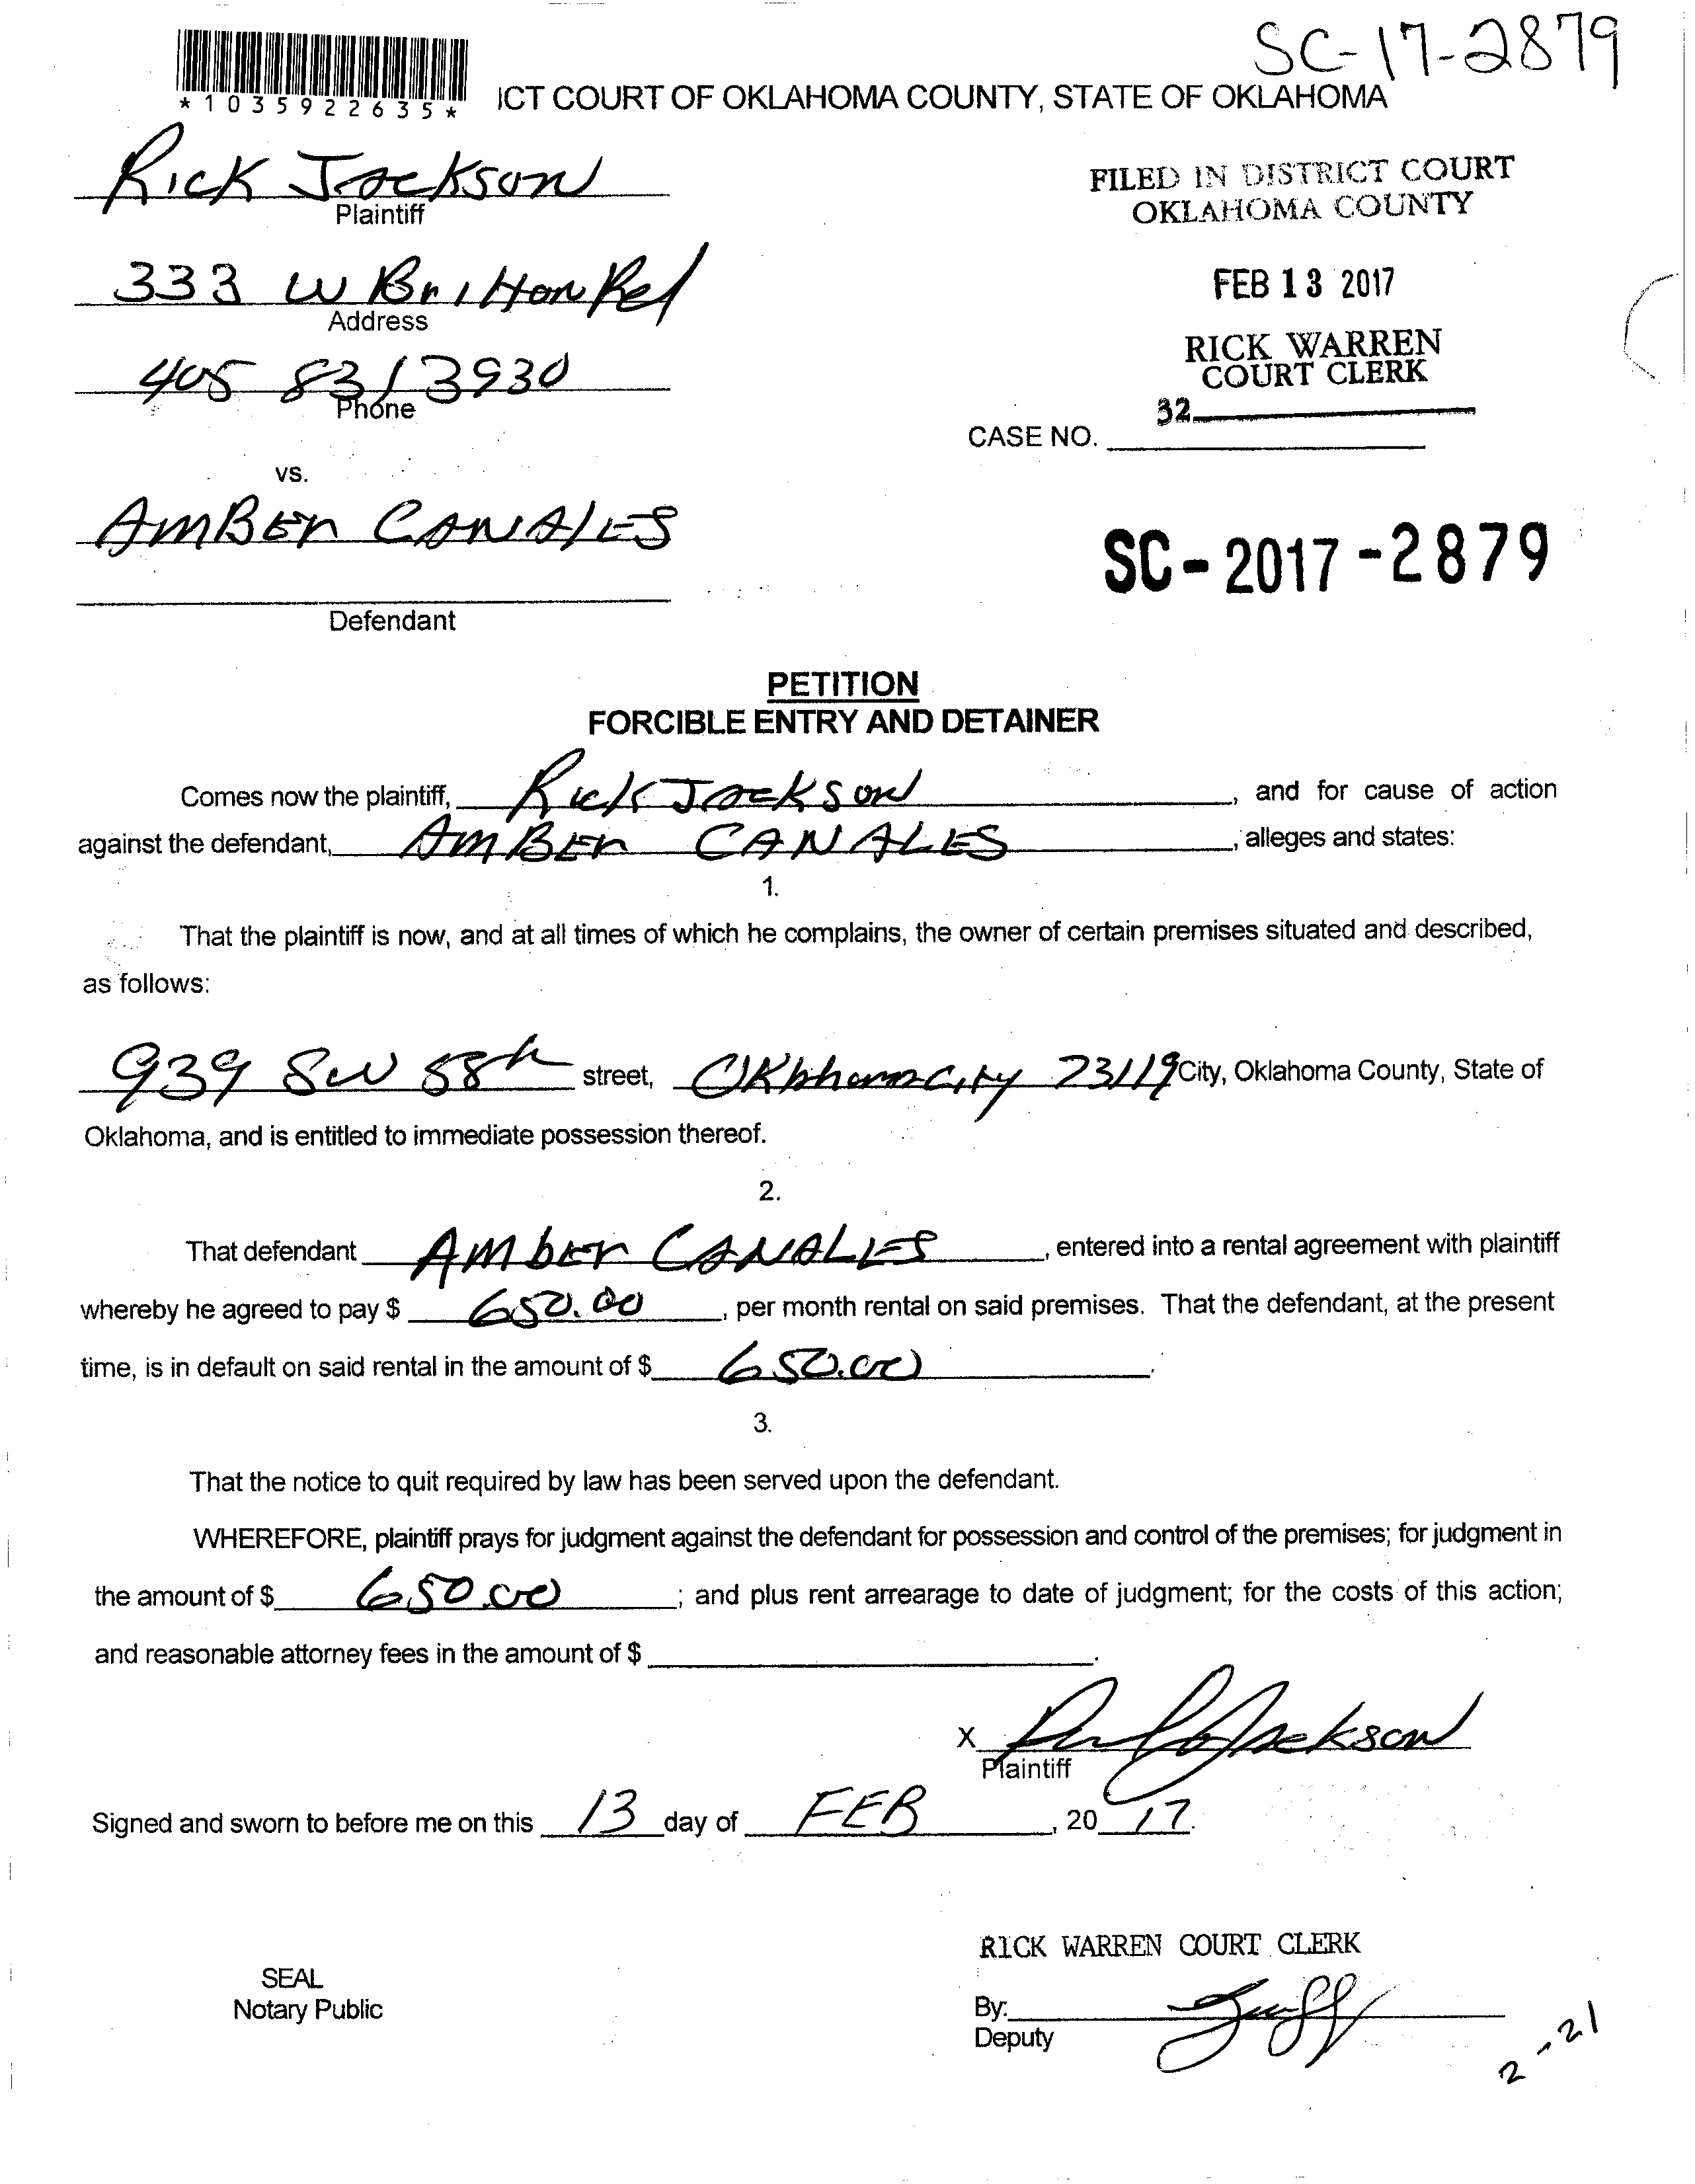 SC-17-2879
*1035922635*
ICT COURT OF OKLAHOMA COUNTY, STATE OF OKLAHOMA
Rick Jackson
Plaintiff
FILED IN DISTRICT COURT
OKLAHOMA COUNTY
333 W Britton Rd
Address
FEB 13 2017
RICK WARREN
COURT CLERK
405 831 3930
Phone
32
CASE NO.
vs.
AMBER CANALES
SC-2017-2879
Defendant
PETITION
FORCIBLE ENTRY AND DETAINER
Comes now the plaintiff, Rick Jackson, and for cause of action
against the defendant, AMBER CANALES, alleges and states:
1.
That the plaintiff is now, and at all times of which he complains, the owner of certain premises situated and described,
as follows:
939 SW 58th street, Oklahoma City 73119 City, Oklahoma County, State of
Oklahoma, and is entitled to immediate possession thereof.
2.
That defendant AMBER CANALES, entered into a rental agreement with plaintiff
whereby he agreed to pay $ 650.00, per month rental on said premises. That the defendant, at the present
time, is in default on said rental in the amount of $ 650.00.
3.
That the notice to quit required by law has been served upon the defendant.
WHEREFORE, plaintiff prays for judgment against the defendant for possession and control of the premises; for judgment in
the amount of $ 650.00; and plus rent arrearage to date of judgment; for the costs of this action;
and reasonable attorney fees in the amount of $ .
X Jackson
Plaintiff
Signed and sworn to before me on this 13 day of FEB, 20 17.
RICK WARREN COURT CLERK
SEAL
Notary Public
By:
Deputy
2-21